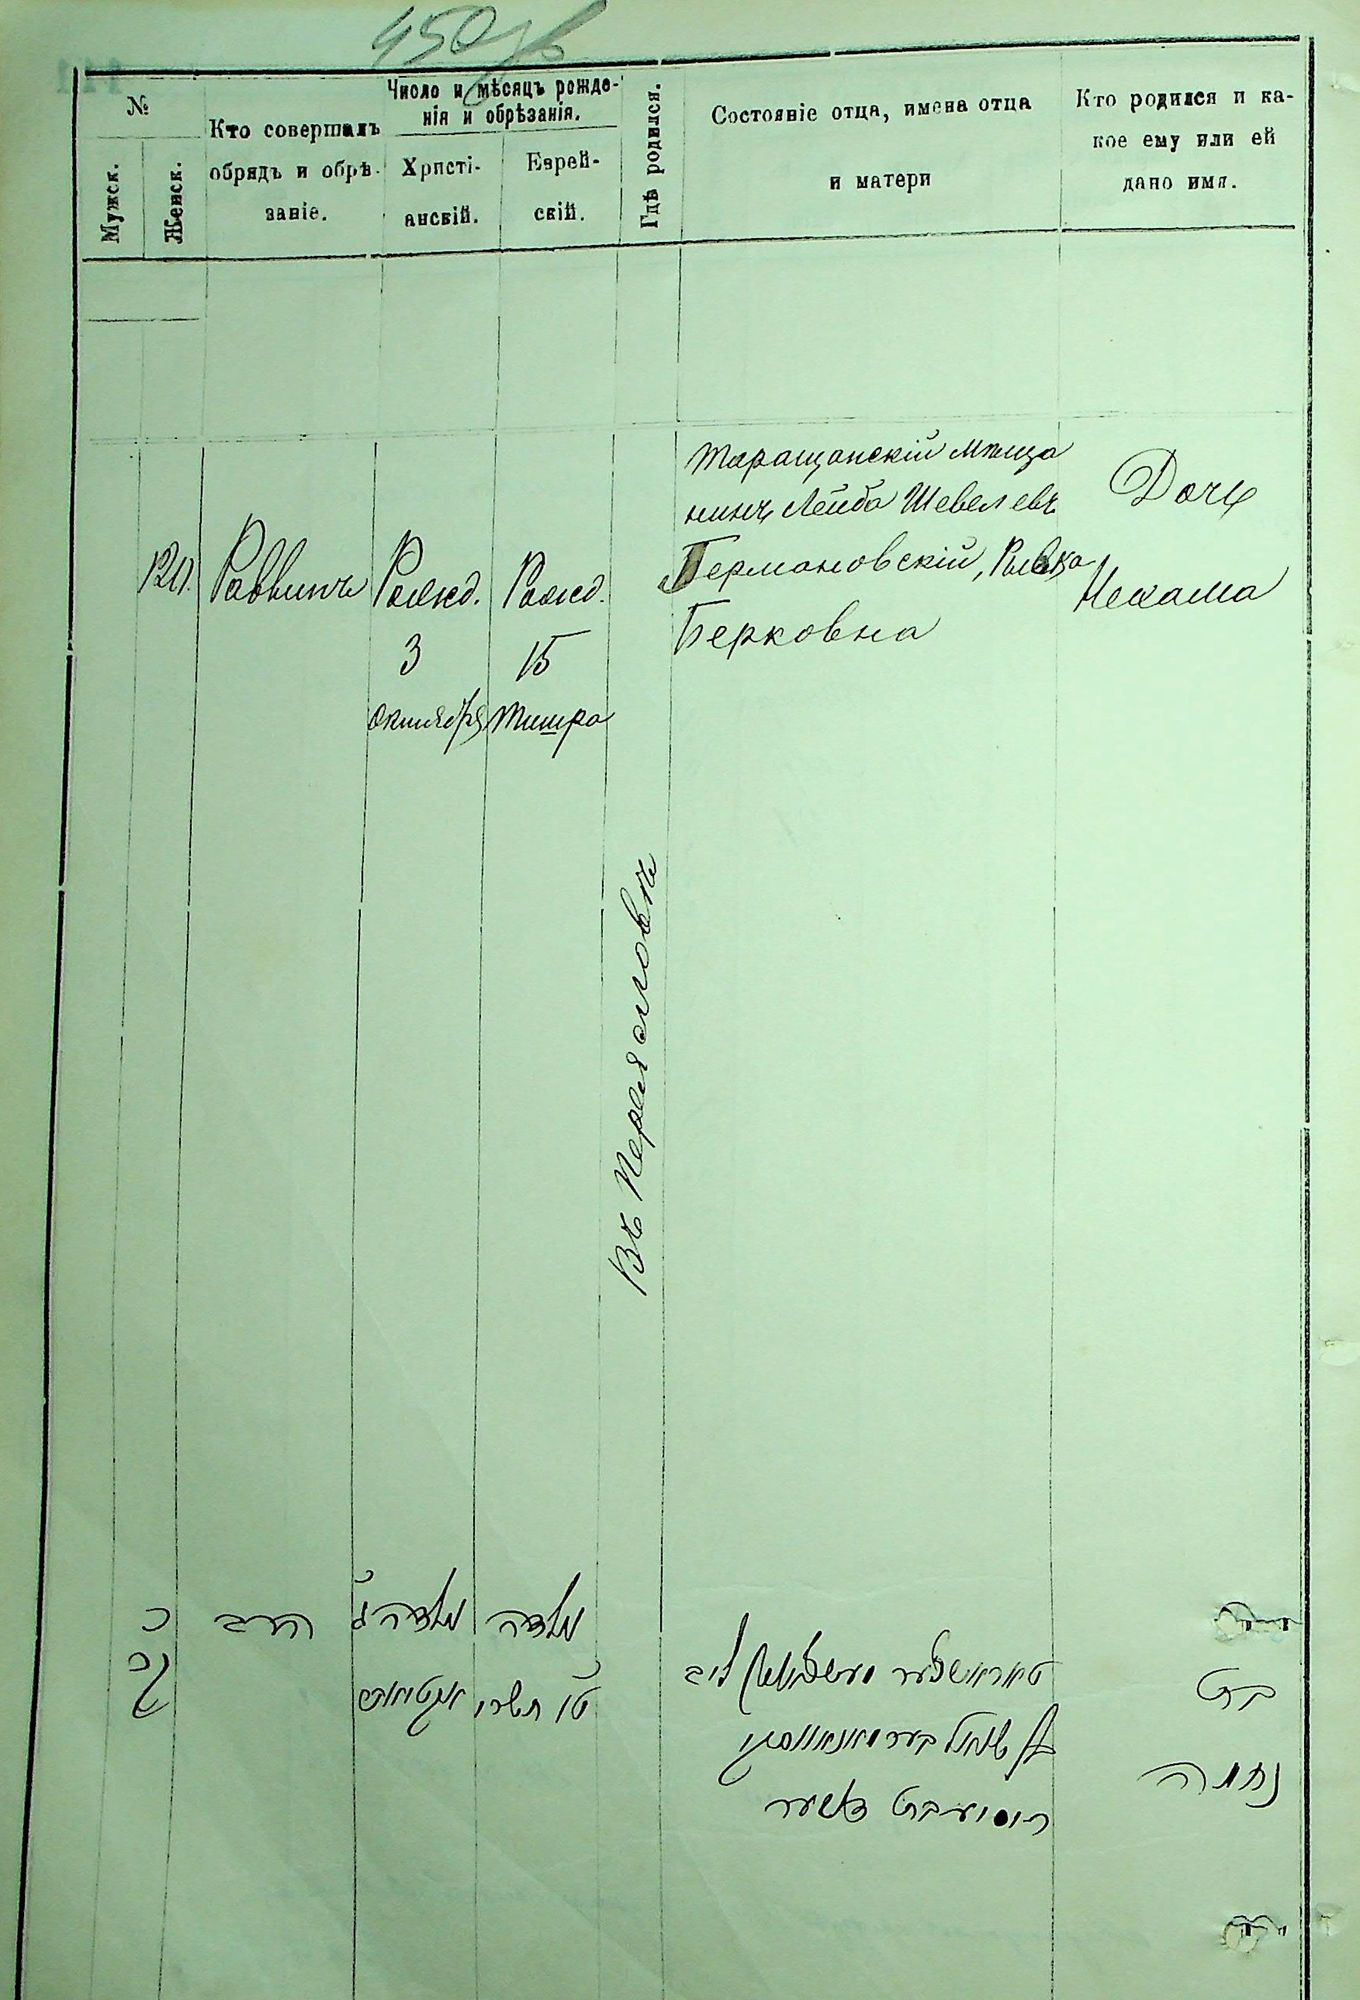 450
№
Мужск.
Женск.
Кто совершалъ
обрядъ и обрѣ-
заніе.
Число и мѣсяцъ рожде-
нія и обрѣзанія.
Христі-
анскій.
Еврей-
скій.
Гдѣ родился.
Состояніе отца, имена отца
и матери
Кто родился и ка-
кое ему или ей
дано имя.
120.
Раввинъ
Рожд.
3
октября
Рожд.
15
Тишра
Въ Переяславѣ
Таращанскій мѣща
нинъ Лейба Шевелевъ
Германовскій, Ривка
Берковна
Дочь
Нехама
הרב
נולדה
נולדה
ט״ו תשרי
בת
נחמה